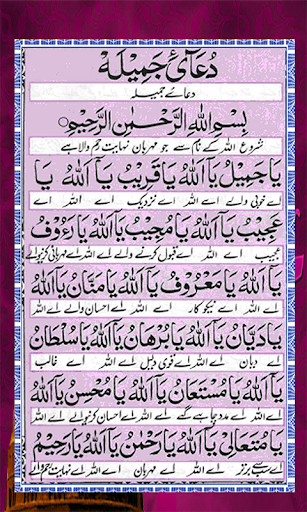 دُعَائے جَمِیْلَہ
دعائے جمیلہ
بِسْمِ اللّٰهِ الرَّحْمٰنِ الرَّحِيْمِ
شروع اللہ کے نام سے جو مہربان نہایت رحم والا ہے
يَا جَمِيْلُ يَا اَللّٰهُ يَا قَرِيْبُ يَا اَللّٰهُ يَا
اے خوبی والے اے اللہ اے نزدیک اے اللہ اے
عَجِيْبُ يَا اَللّٰهُ يَا مُجِيْبُ يَا اَللّٰهُ يَا رَءُوْفُ
عجیب اے اللہ اے قبول کرنے والے اے اللہ اے مہربانی کرنیوالے
يَا اَللّٰهُ يَا مَعْرُوْفُ يَا اَللّٰهُ يَا مَنَّانُ يَا اَللّٰهُ
اے اللہ اے نیکو کار اے اللہ اے احسان والے اے اللہ
يَا دَيَّانُ يَا اَللّٰهُ يَا بُرْهَانُ يَا اَللّٰهُ يَا سُلْطَانُ
اے دیان اے اللہ اے قوی دلیل اے اللہ اے غالب
يَا اَللّٰهُ يَا مُسْتَعَانُ يَا اَللّٰهُ يَا مُحْسِنُ يَا اَللّٰهُ
اے اللہ اے مدد چاہے گئے اے اللہ اے احسان کرنیوالے اے اللہ
يَا مُتَعَالِىْ يَا اَللّٰهُ يَا رَحْمٰنُ يَا اَللّٰهُ يَا رَحِيْمُ
اے سب سے برتر اے اللہ اے مہربان اے اللہ اے نہایت